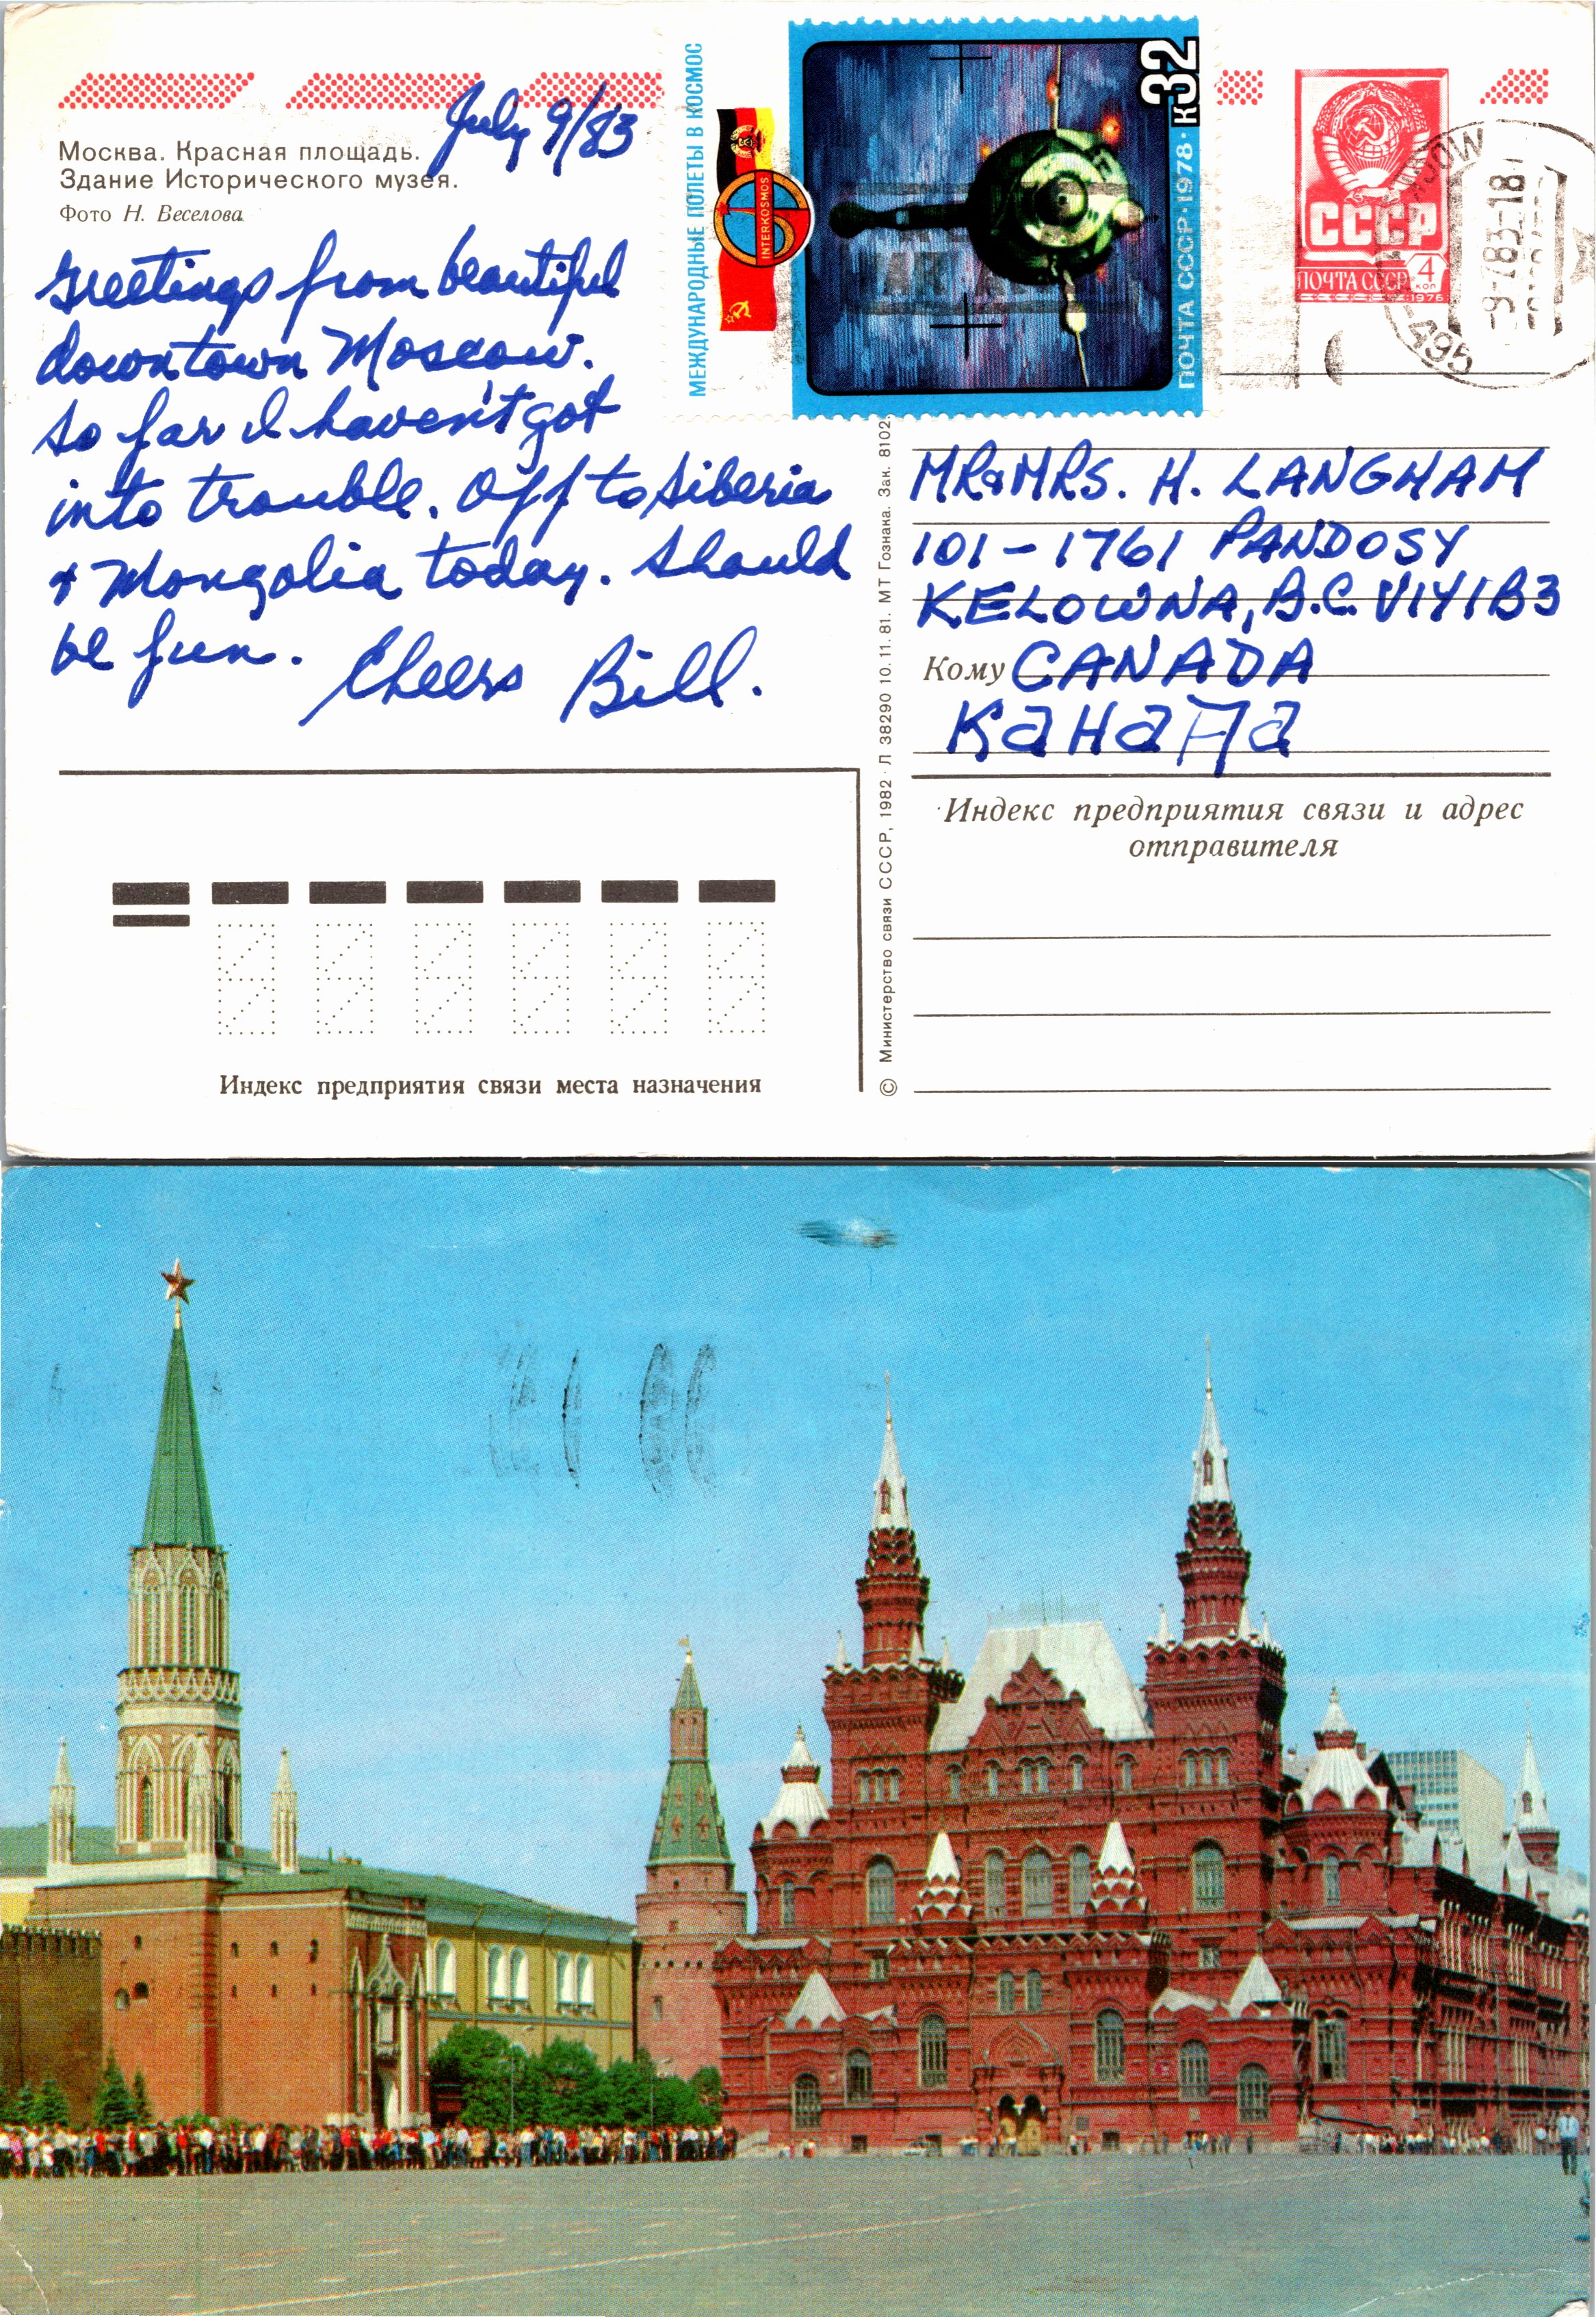 July 9/83
Москва. Красная площадь.
Здание Исторического музея.
Фото Н. Веселова
Greetings from beautiful
downtown Moscow.
So far I haven't got
into trouble. Off to Siberia
& Mongolia today. Should
be fun.
Cheers Bill.
МЕЖДУНАРОДНЫЕ ПОЛЕТЫ В КОСМОС
INTERKOSMOS
ПОЧТА СССР·1978· К32
СССР
ПОЧТА СССР 4 КОП
1976
-9-7 83-18
-495
MR & MRS. H. LANGHAM
101 - 1761 PANDOSY
KELOWNA, B.C. V1Y1B3
Кому CANADA
Канада
Индекс предприятия связи и адрес
отправителя
Индекс предприятия связи места назначения
© Министерство связи СССР, 1982 · Л 38290 10.11.81. МТ Гознака. Зак. 8102.